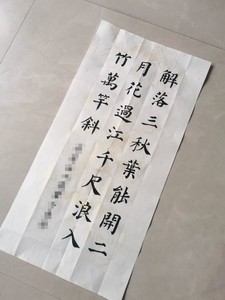 解落三秋葉能開二
月花過江千尺浪入
竹萬竿斜